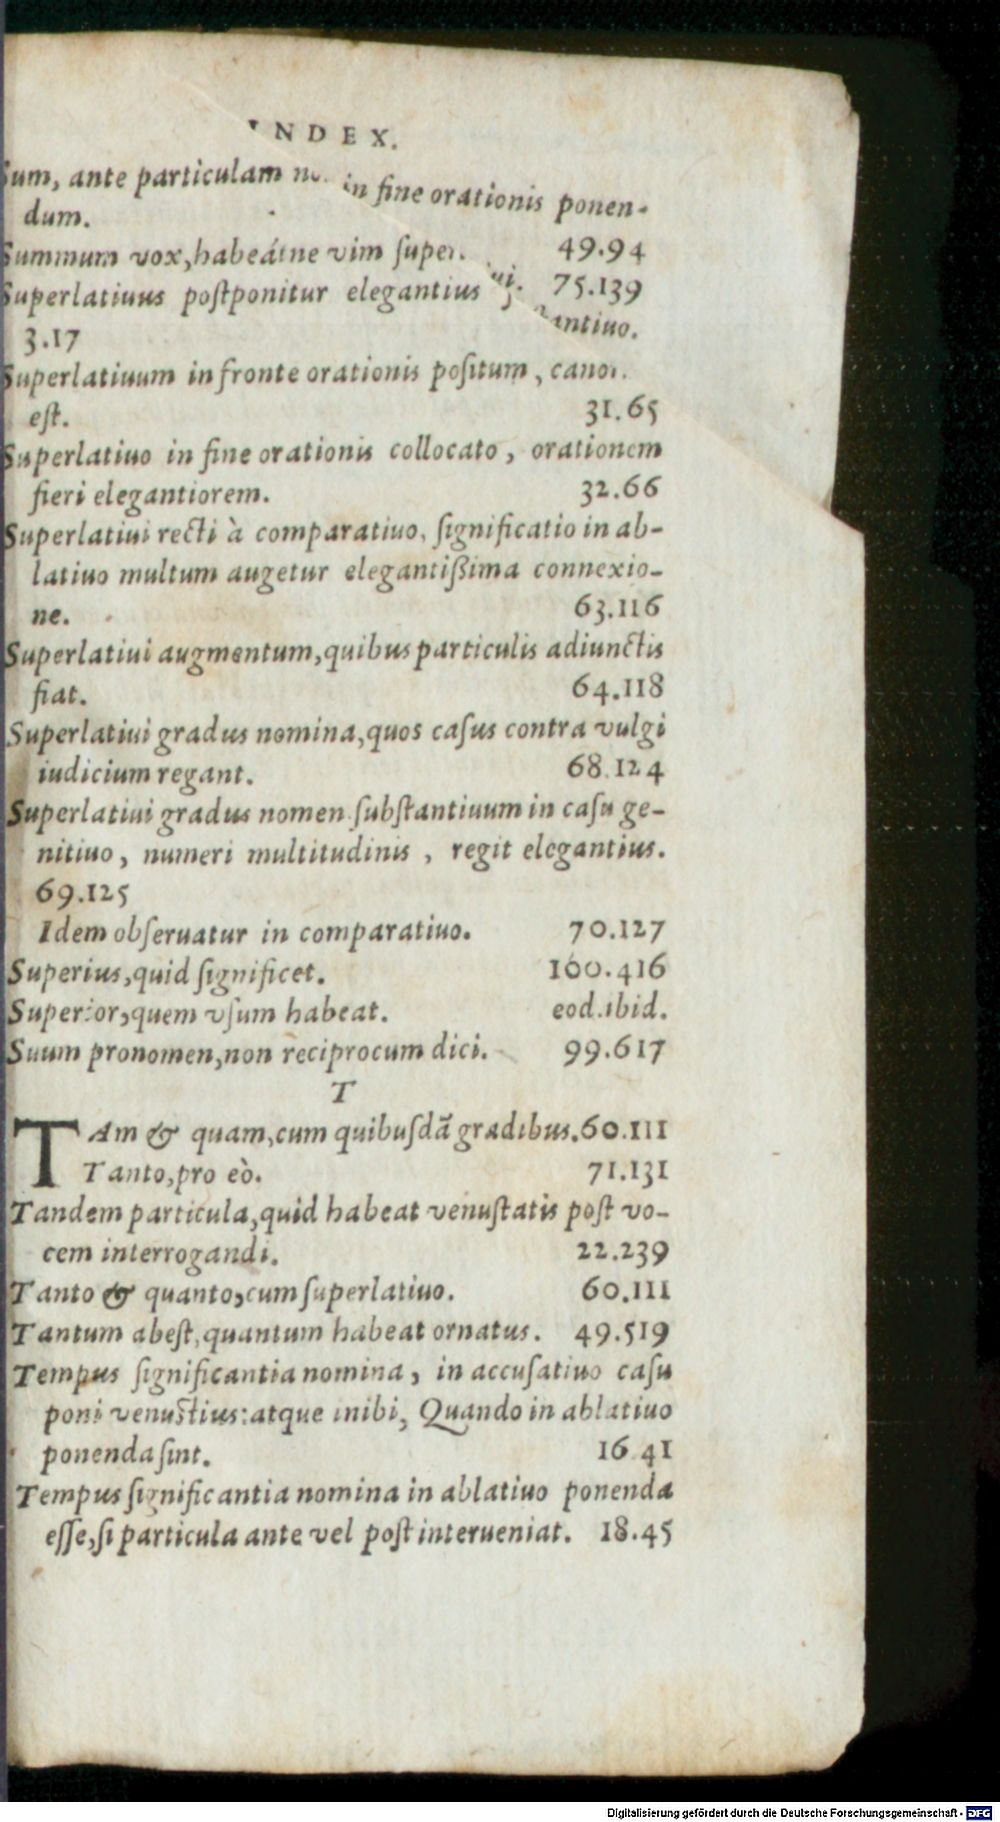 INDEX.
Sum, ante particulam in fine orationis ponen-
dum. 49.94
Summum vox, habeátne vim 75.139
Superlatiuus postponitur elegantius
3.17
Superlatiuum in fronte orationis positum,
est. 31.65
Superlatiuo in fine orationis collocato, orationem
fieri elegantiorem. 32.66
Superlatiui recti à comparatiuo, significatio in ab-
latiuo multum augetur elegantißima connexio-
ne. 63.116
Superlatiui augmentum, quibus particulis adiunctis
fiat. 64.118
Superlatiui gradus nomina, quos casus contra vulgi
iudicium regant. 68.124
Superlatiui gradus nomen substantiuum in casu ge-
nitiuo, numeri multitudinis, regit elegantius.
69.125
Idem obseruatur in comparatiuo. 70.127
Superius, quid significet. 100.416
Superior, quem vsum habeat. eod.ibid.
Suum pronomen, non reciprocum dici. 99.617
T
TAm & quam, cum quibusdã gradibus. 60.111
Tanto, pro eò. 71.131
Tandem particula, quid habeat venustatis post vo-
cem interrogandi. 22.239
Tanto & quanto, cum superlatiuo. 60.111
Tantum abest, quantum habeat ornatus. 49.519
Tempus significantia nomina, in accusatiuo casu
poni venustius: atque inibi, Quando in ablatiuo
ponenda sint. 16.41
Tempus significantia nomina in ablatiuo ponenda
esse, si particula ante vel post interueniat. 18.45
Digitalisierung gefördert durch die Deutsche Forschungsgemeinschaft - DFG